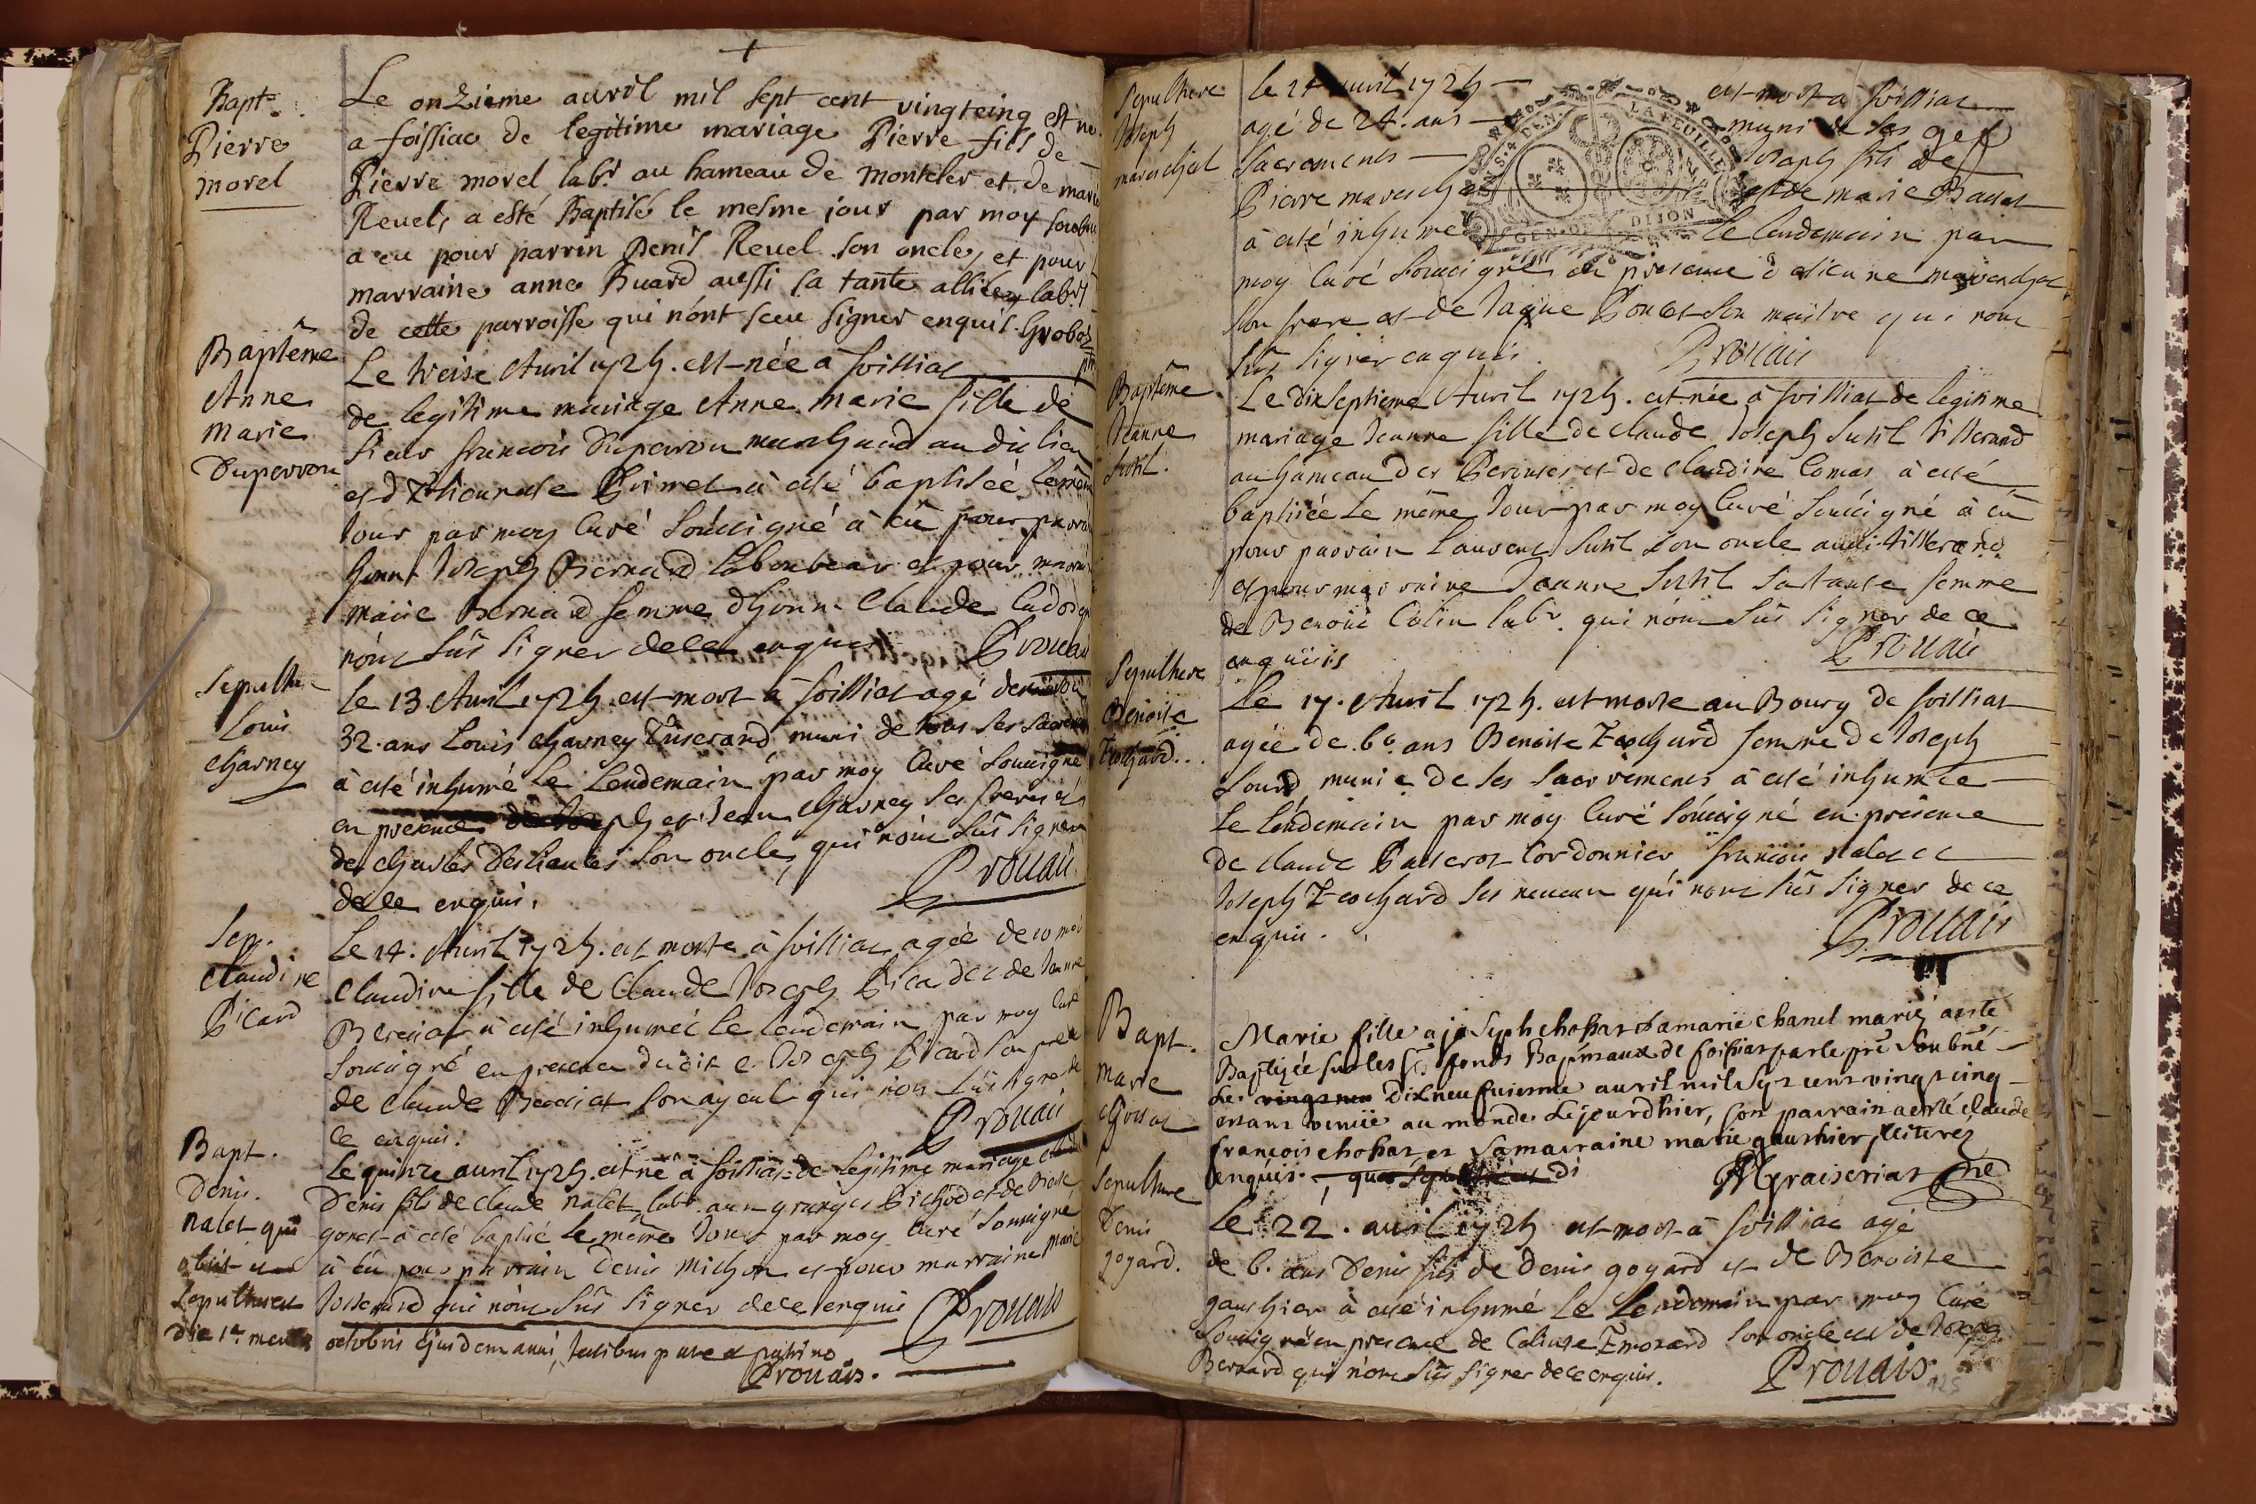 +
Bapt.
Pierre
morel
Le onzieme avvril mil sept cent vingtcinq est né
a foissiac de legitime mariage Pierre fils de
Pierre morel labr. au hameau de monteler et de marie
Revel, a esté Baptisé le mesme jour par moy soub
a eu pour parrin Denis Revel son oncle, et pour
marraine anne Buard aussi sa tante alliée labrs
de cette parroisse qui n'ont sceu signer enquis. Groboz
Baptême
Anne
Marie
Duperron
Le treise Avril 1725. est née a foissiat
de legitime mariage Anne marie fille de
sieur francois Duperron marchand au dit lieu
et d'Estiennette Primet à eté baptisée le même
Jour par moy Curé Soucigné à eû pour parrain
honnt Joseph Bernard laboureur et pour marraine
marie Bernard femme d'honn Claude
n'ont sûs signer dece enquis Prouais
Sepulture
Louis
Charney
Le 13 Avril 1725. est mort à foissiat agé denviron
32. ans Louis Charney Tisserand muni de tous ses sacremens
à eté inhumé le lendemain par moy Curé Soucigné
en presence de Joseph et Jean Charney ses freres et
de Charles son oncle, qui n'ont sûs signer
de ce enquis. Prouais
Sep.
Claudine
Picard
Le 14. Avril 1725. est morte à foissiat agée de 10 mois
Claudine fille de Claude Joseph Picard et de Jeanne
à eté inhumée le lendemain par moy Curé
Soucigné en presence dudit Joseph Picard son pere
de Claude son ayeul qui n'ont sûs signer de
ce enquis. Prouais
Bapt.
Denis
nalet qui
obiit et
sepultus est
die 1a mensis
Le quinze avril 1725. est né à foissiat de legitime mariage
Denis fils de Claude nalet labr. aux granges Pichod et de
gonet à eté baptisé le même Jour par moy Curé Soucigné
à eû pour parrain Denis michon et pour marraine marie
Josserand qui n'ont sûs signer dece enquis Prouais
octobris ejusdem anni, testibus patre et patrino
Prouais.
Sepulture
Joseph
mareschal
le avril 1725 est mort à foissiat
agé de 24. ans muni de ses
Sacremens Joseph fils de
Pierre mareschal et de marie
à eté inhumé le lendemain par
moy Curé Soucigné en presence d'estienne mareschal
son frere et de Jaque Ponet son maître qui n'ont
sûs signer enquis. Prouais
LA FEUILLE
GEN. DE DIJON
Baptême
Jeanne
Sutil.
Le dixseptieme Avril 1725. est née à foissiat de legitime
mariage Jeanne fille de Claude Joseph Sutil tisserand
au hameau des Perouses et de Claudine Comas à eté
baptisée le même Jour par moy Curé Soucigné à eû
pour parrain Laurent Sutil son oncle aussi tisserand
et pour marraine Jeanne Sutil sa tante femme
de Benoit Colin labr. qui n'ont sûs signer de ce
enquis Prouais
Sepulture
Benoite
Trochard..
Le 17. Avril 1725. est morte au Bourg de foissiat
agée de 60 ans Benoite Trochard femme de Joseph
Sourd munie de ses Sacremens à eté inhumée
le lendemain par moy Curé Soucigné en presence
de Claude Passerot Cordonnier francois nalet et
Joseph Trochard ses neveux qui n'ont sûs signer de ce
enquis. Prouais
Bapt.
Marie
Marie fille a joseph chossat et a marie chanel mariés a esté
Baptizée sur les fonds Baptismaux de foissiat par le pre soubné
le dixneufuiesme auvril mil sept cent vingt cinq
estant venüe au monde le jourdhier, son parrain a esté claude
francois chossat et sa marraine marie gauthier, illiterez
enquis.
Sepulture
Denis
goyard.
Le 22. avril 1725 est mort à foissiat agé
de 6. ans Denis fils de Denis goyard et de Benoiste
gauthier à eté inhumé le lendemain par moy Curé
Soucigné en presence de son oncle et de Joseph
Bernard qui n'ont sûs signer dece enquis. Prouais